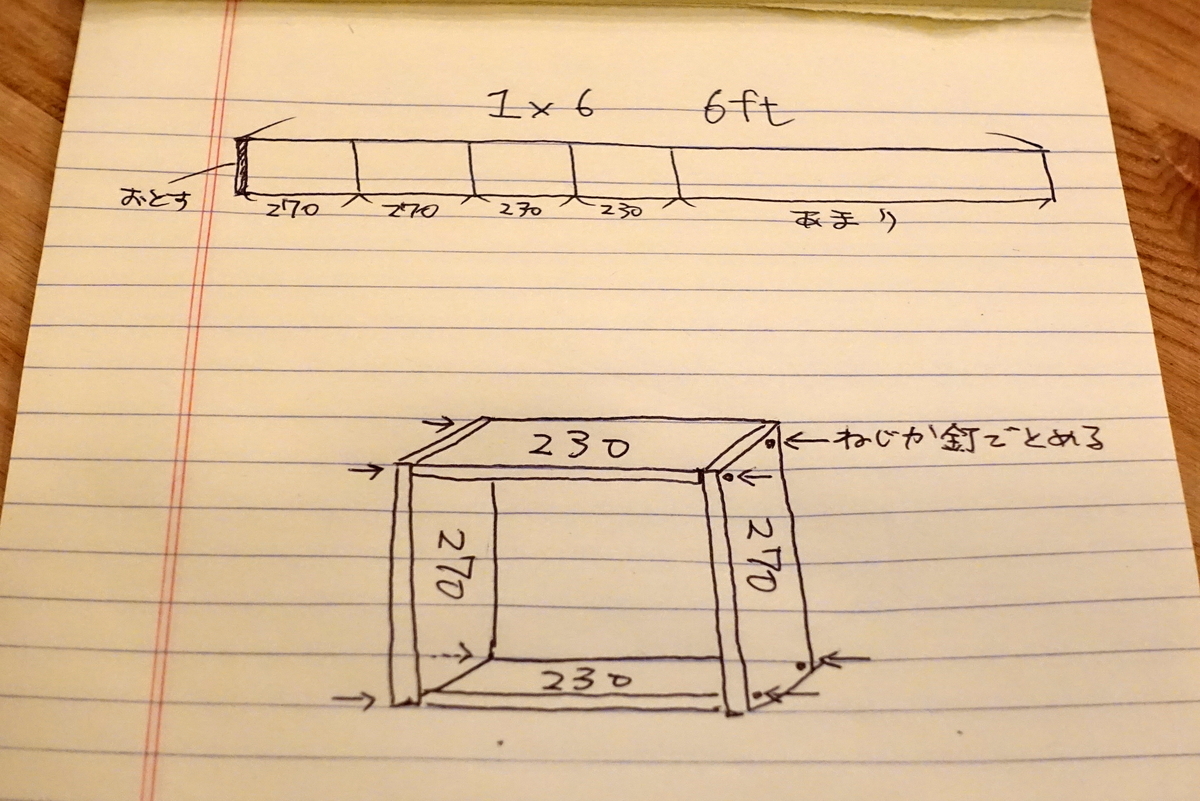 1×6 6ft
おとす
270 270 230 230 あまり
230
ねじか釘でとめる
270
270
230